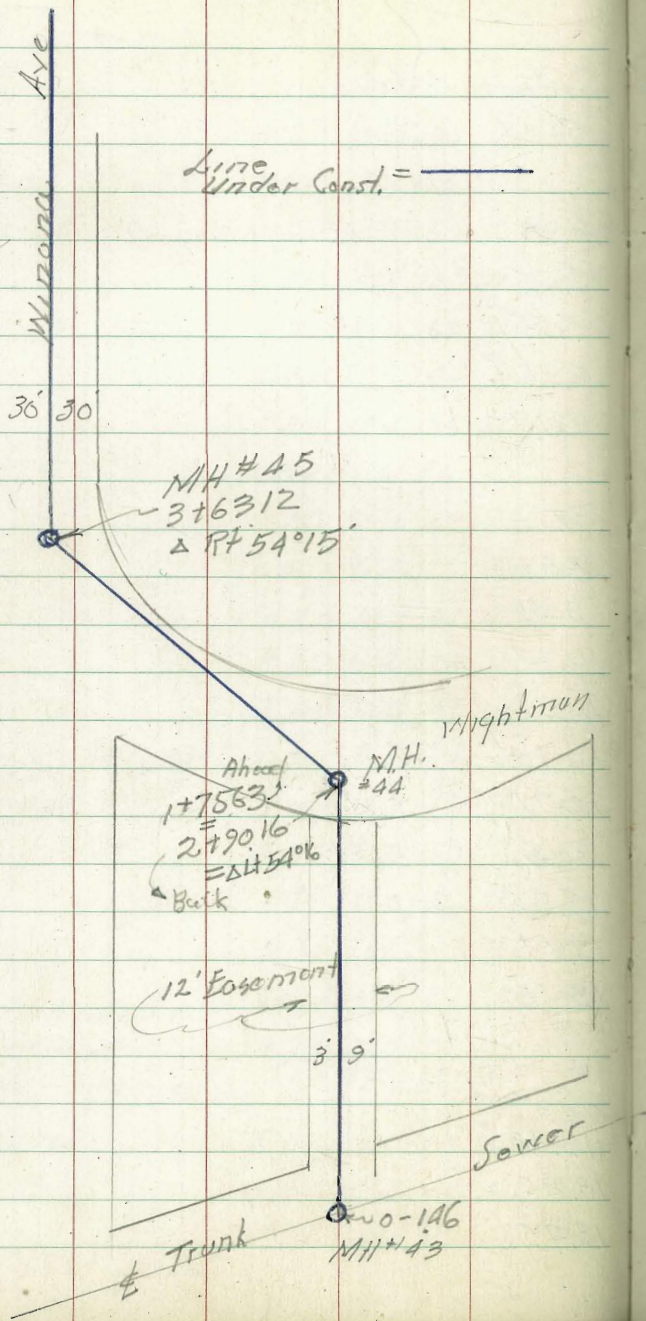 Winona Ave
Line
Under Const. =
30' 30'
MH # 45
3+63.12
Δ Rt 54°15'
Wightman
M.H.
#44
Ahead
1+75.63
=
2+90.16
= Δ Lt 54°16
Back
12' Easement
3' 9'
Sewer
Trunk
0-1.46
MH # 43